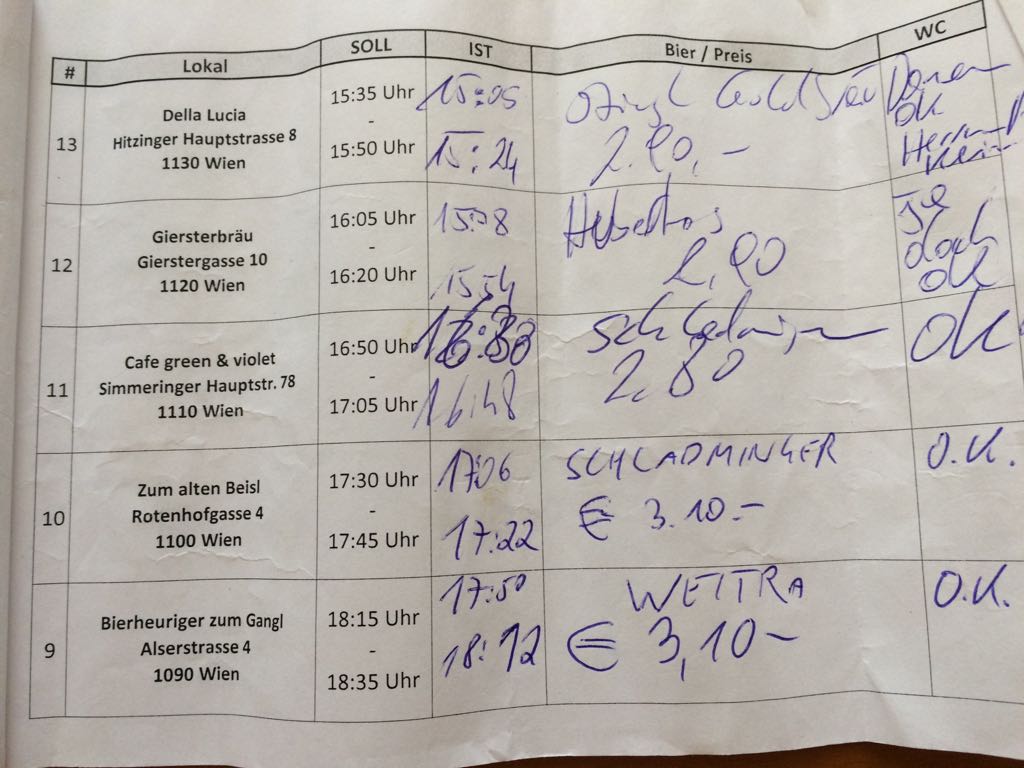 # Lokal SOLL IST Bier / Preis WC
13
Della Lucia
Hitzinger Hauptstrasse 8
1130 Wien
15:35 Uhr
-
15:50 Uhr
15:05
15:24
2.90,-
Damen
OK
Herren
12
Giersterbräu
Gierstergasse 10
1120 Wien
16:05 Uhr
-
16:20 Uhr
15:54
2,90
doch
OK
11
Cafe green & violet
Simmeringer Hauptstr. 78
1110 Wien
16:50 Uhr
-
17:05 Uhr
16:48
2,80
OK
10
Zum alten Beisl
Rotenhofgasse 4
1100 Wien
17:30 Uhr
-
17:45 Uhr
17:06
17:22
SCHLADMINGER
€ 3.10.-
O.K.
9
Bierheuriger zum Gangl
Alserstrasse 4
1090 Wien
18:15 Uhr
-
18:35 Uhr
17:50
18:12
WEITRA
€ 3,10-
O.K.